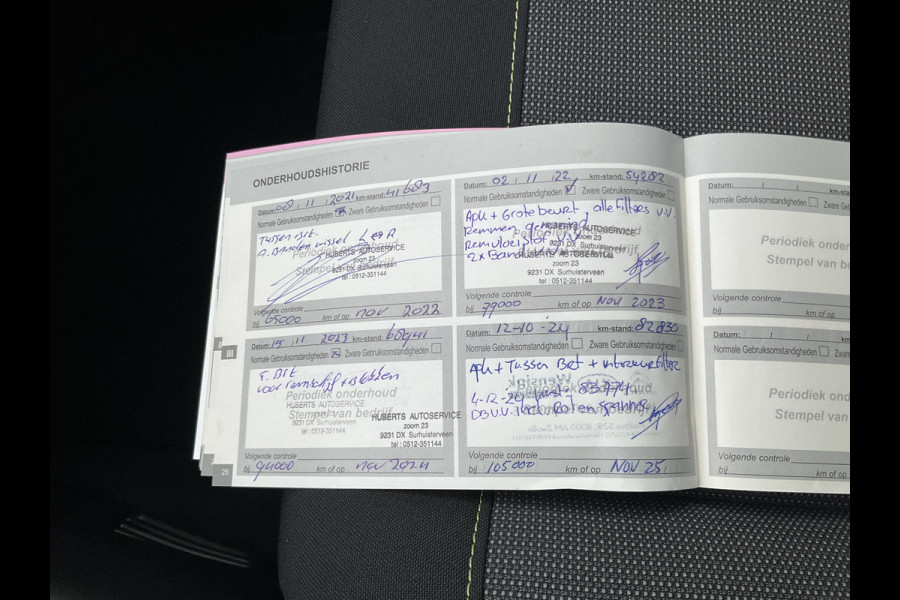 ONDERHOUDSHISTORIE
Datum: 08 / 11 / 2021 km-stand: 41683
Normale Gebruiksomstandigheden Zware Gebruiksomstandigheden
Tussen Bet.
Banden wissel
Periodiek onderhoud
Stempel van bedrijf
HUBERTS AUTOSERVICE
zoom 23
9231 DX Surhuisterveen
tel: 0512-351144
Volgende controle
bij 65000 km of op nov 2022
Datum: 02 / 11 / 22 km-stand: 54282
Normale Gebruiksomstandigheden Zware Gebruiksomstandigheden
Apk + Grote beurt, alle filters v.v.
Remmen gereinigd
Remvloeistof
2x Band
HUBERTS AUTOSERVICE
zoom 23
9231 DX Surhuisterveen
HUBERTS AUTOSERVICE
zoom 23
9231 DX Surhuisterveen
tel: 0512-351144
Volgende controle
bij 79000 km of op Nov 2023
Datum: / /
km-sta
Normale Gebruiksomstandigheden
Periodiek onder
Stempel van be
Volgende controle
bij km of op
III
Datum: 15 11 2023 km-stand:
Normale Gebruiksomstandigheden Zware Gebruiksomstandigheden
voor remschijf + blokken
Periodiek onderhoud
Stempel van bedrijf
HUBERTS AUTOSERVICE
zoom 23
9231 DX Surhuisterveen
tel: 0512-351144
HUBERTS AUTOSERVICE
zoom 23
9231 DX Surhuisterveen
tel: 0512-351144
Volgende controle
bij 94000 km of op nov 2024
Datum: 12-10-24 km-stand: 82830
Normale Gebruiksomstandigheden Zware Gebruiksomstandigheden
Apk + Tussen Bet + interieurfilter
4-12-24 83774
Volgende controle
bij 105000 km of op Nov 25
Datum: / /
km-st
Normale Gebruiksomstandigheden
Periodiek onde
Stempel van b
Volgende controle
bij km of op
26